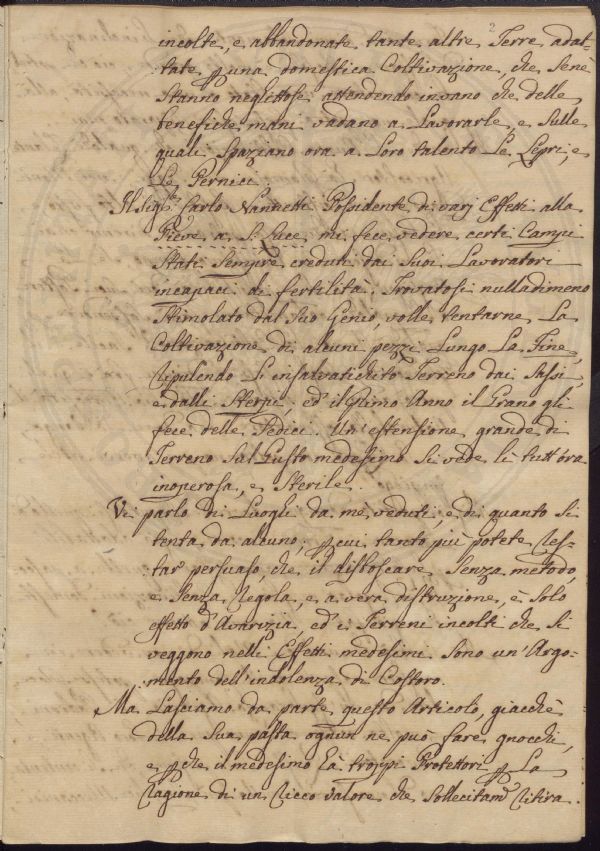 2
incolte, e abbandonate tante altre Terre adat-
tate p una domestica Coltivazione, che Sene
Stanno neglittose attendendo invano che delle
benefiche mani vadano a Lavorarle, e Sulle
quali Spaziano ora a Loro talento Le Lepri, e
Le Pernici.
Il Sig.re Carlo Nannetti Possidente di varj Effetti alla
Pieve a S. Luce mi fece vedere certi Campi
Stati Sempre creduti dai Suoi Lavoratori
incapaci di fertilità; Trovatosi nulladimeno
Stimolato dal Suo Genio, volle tentarne La
Coltivazione di alcuni pezzi Lungo La Fine,
Ripulendo L'insalvatichito Terreno dai Sassi,
e dalli Sterpi, ed il Primo Anno il Grano gli
fece delle Sedici. Un'estensione grande di
Terreno Sul Gusto medesimo Si vede lì tutt'ora
inoperosa, e Sterile.
Vi parlo di Luoghi da mè veduti, e di quanto Si
tenta da alcuno, p cui tanto più potete res-
tar persuaso, che il disboscare Senza metodo,
e Senza Regola, e a vera distruzione, è Solo
effetto d'Avarizia, ed i Terreni incolti che Si
veggono nelli Effetti medesimi Sono un'Argo-
mento dell'indolenza di Costoro.
Ma Lasciamo da parte questo Articolo, giacchè
della Sua pasta ognun ne può fare gnocchi,
e pche il medesimo hà troppi Protettori p La
Ragione di un Ricco valore che Sollecitam.e Ritira.